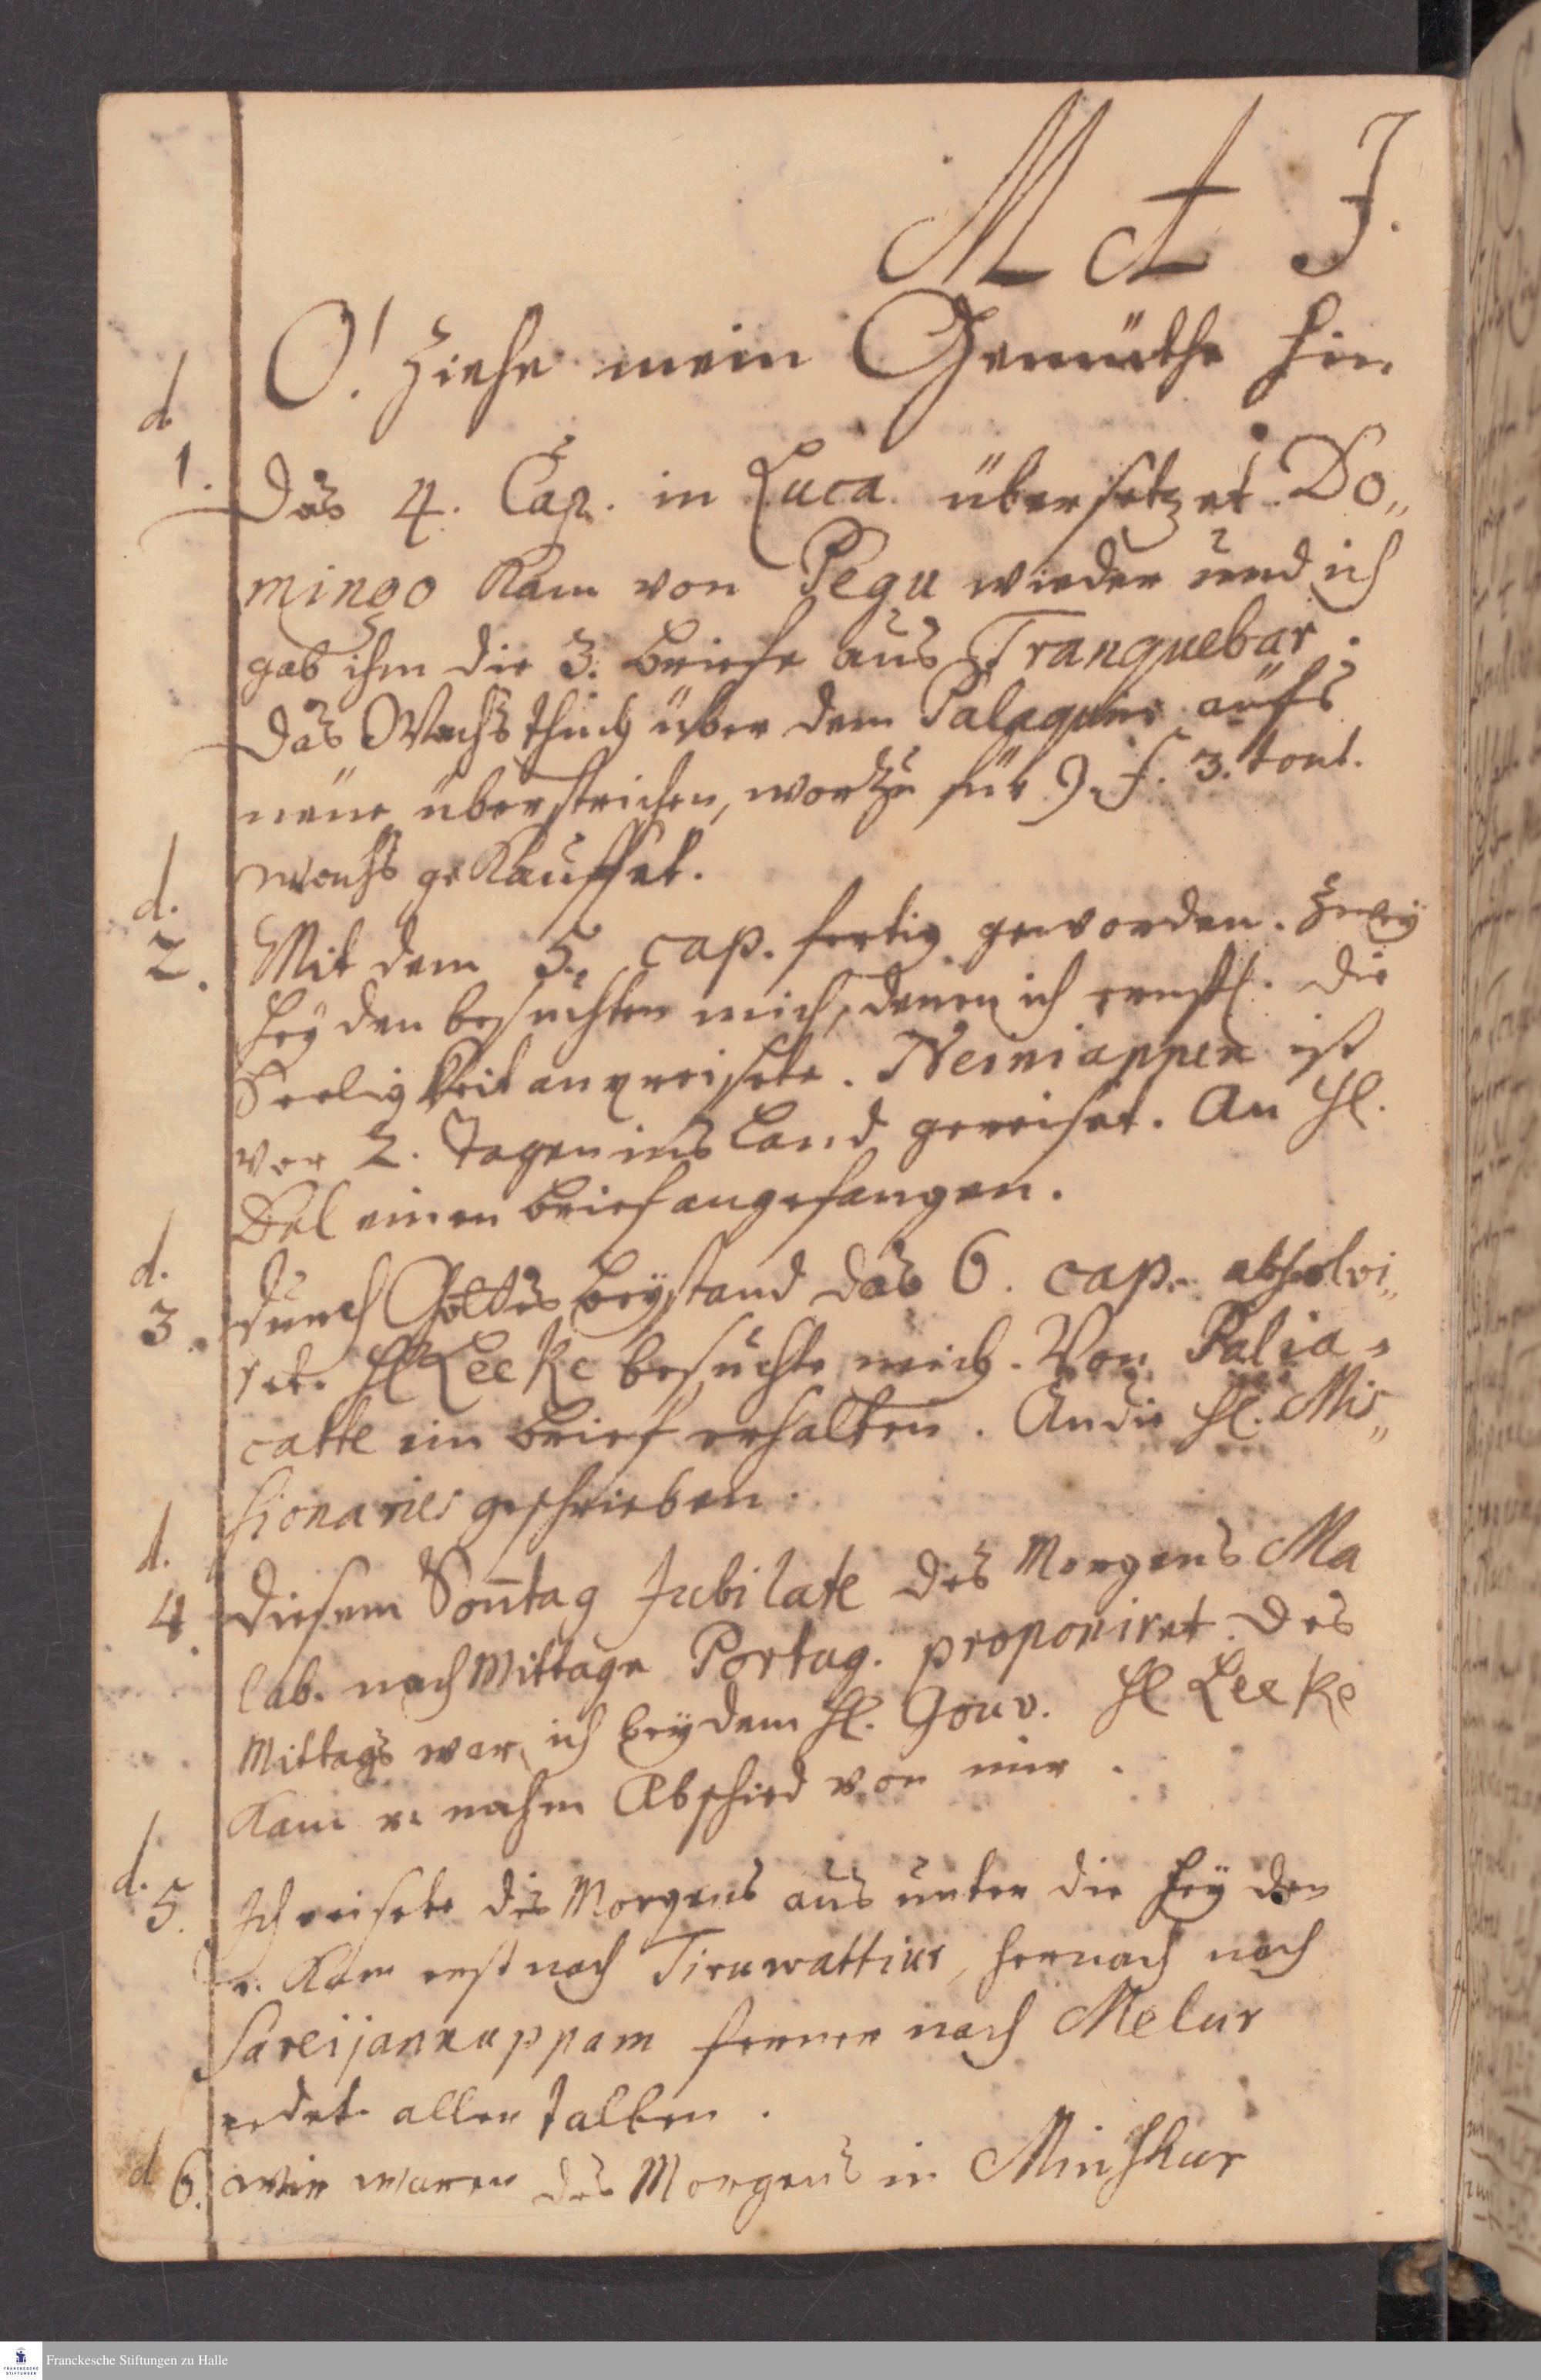 M A J.
O! Ziehe mein Gemüthe hin
d.
1. Das 4. Cap. in Luca. übersetzet. Do„
mingo kam von Pegu wieder und ich
gab ihm die 3. briefe aus Tranquebar.
Das Wachsthuch über dem Palaquin aufs
neue überstrichen, wozu für 9. f. 3. tout.
wachs gekauffet.
d.
2. Mit dem 5. cap. fertig geworden. Zwey
Heyden besuchten mich, denen ich ernstl. die
Seeligkeit anpreisete. Neiniappen ist
vor 2. Tagen ins Land gereiset. An H.
Dal einen brief angefangen.
d.
3. Durch Gottes beystand das 6. cap. absolvi„
ret. H Leeke besuchte mich. Von Palia„
catte ein brief erhalten. An die H. Mis„
sionaries geschrieben.
d.
4. Diesem Sontag Jubilate des Morgens Ma
lab. nach Mittage Portug. proponiret. Des
Mittags war ich bey dem H. Gouv. H Leeke
kam u. nahm Abschied von mir.
d.
5. Ich reisete des Morgens aus unter die Heyden
u. kam erst nach Tiruwattiur, hernach nach
Sareijankuppam ferner nach Melur
redet. allenthalben.
d 6. wir waren des Morgens in Minshur
Franckesche Stiftungen zu Halle